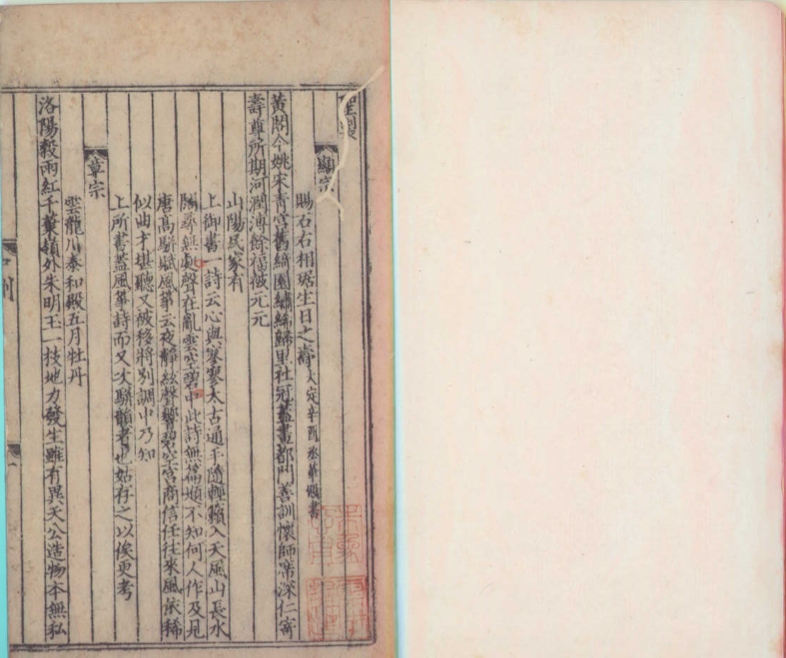 聖製
顯宗
賜石右相琚生日之壽 大定辛酉丞華殿書
黃閣今姚宋青宮舊綺園繡絺歸里社冠蓋畫都門善訓懷師席深仁寄
壽尊所期河潤溥餘福薇元元
山陽民家有
上御書一詩云心與寥寥太古通手隨輕籟入天風山長水
闊尋無處聲在亂雲空碧中此詩無篇題不知何人作及見
唐高駢賦風箏云夜靜絃聲響碧空宮商信任往來風依稀
似曲才堪聽又被移將別調中乃知
上所書蓋風箏詩而又次駢韻者也姑存之以俟更考
章宗
雲龍川泰和殿五月牡丹
洛陽穀雨紅千葉嶺外朱明玉一枝地力發生雖有異天公造物本無私